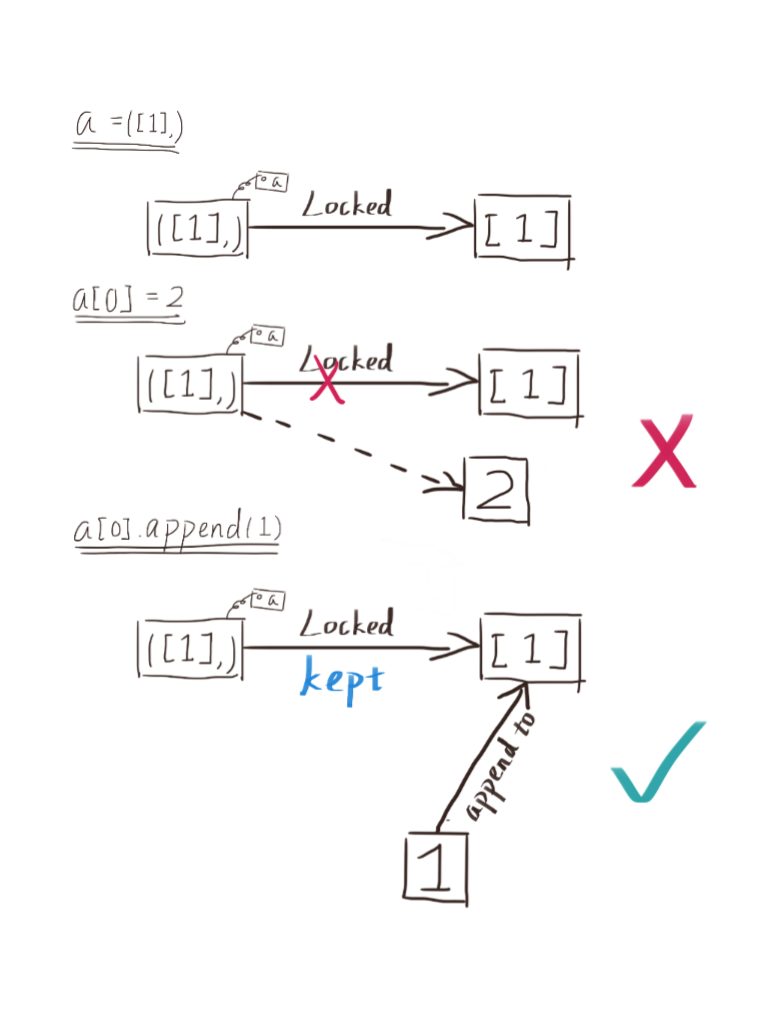 a =([1],)
a
([1],)
Locked
[1]
a[0] = 2
a
([1],)
Locked
X
[1]
X
2
a[0].append(1)
a
([1],)
Locked
[1]
kept
append to
1